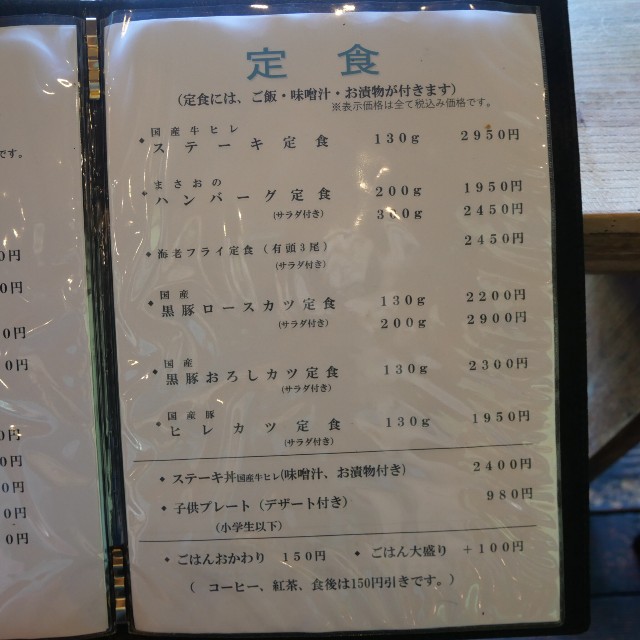 定 食
(定食には、ご飯・味噌汁・お漬物が付きます)
※表示価格は全て税込み価格です。
国産牛ヒレ
◆ステーキ定食 130g 2950円
まさおの
◆ハンバーグ定食 200g 1950円
(サラダ付き) 300g 2450円
◆海老フライ定食(有頭3尾) 2450円
(サラダ付き)
国産
◆黒豚ロースカツ定食 130g 2200円
(サラダ付き) 200g 2900円
国産
◆黒豚おろしカツ定食 130g 2300円
(サラダ付き)
国産豚
◆ヒレカツ定食 130g 1950円
(サラダ付き)
◆ステーキ丼国産牛ヒレ(味噌汁、お漬物付き) 2400円
◆子供プレート(デザート付き) 980円
(小学生以下)
◆ごはんおかわり 150円 ◆ごはん大盛り +100円
( コーヒー、紅茶、食後は150円引きです。)
です。
0円
0円
0円
0円
0円
0円
0円
0円
0円